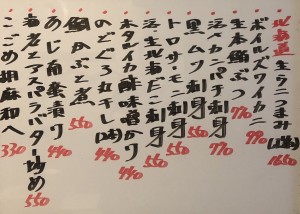 北海道生ウニつまみ(1枚) 1650
ボイルズワイカニ 990
生本鮪ぶつ 770
活〆カンパチ刺身 770
黒ムツ刺身 550
トロサーモン刺身 550
活〆生北海だこ刺身 550
本タルイカ酢味噌がけ 440
のどぐろ丸干し(2尾) 440
鯛かぶと煮 550
あじ南蛮漬け 440
海老とアスパラバター炒め 550
こごめ胡麻和へ 330